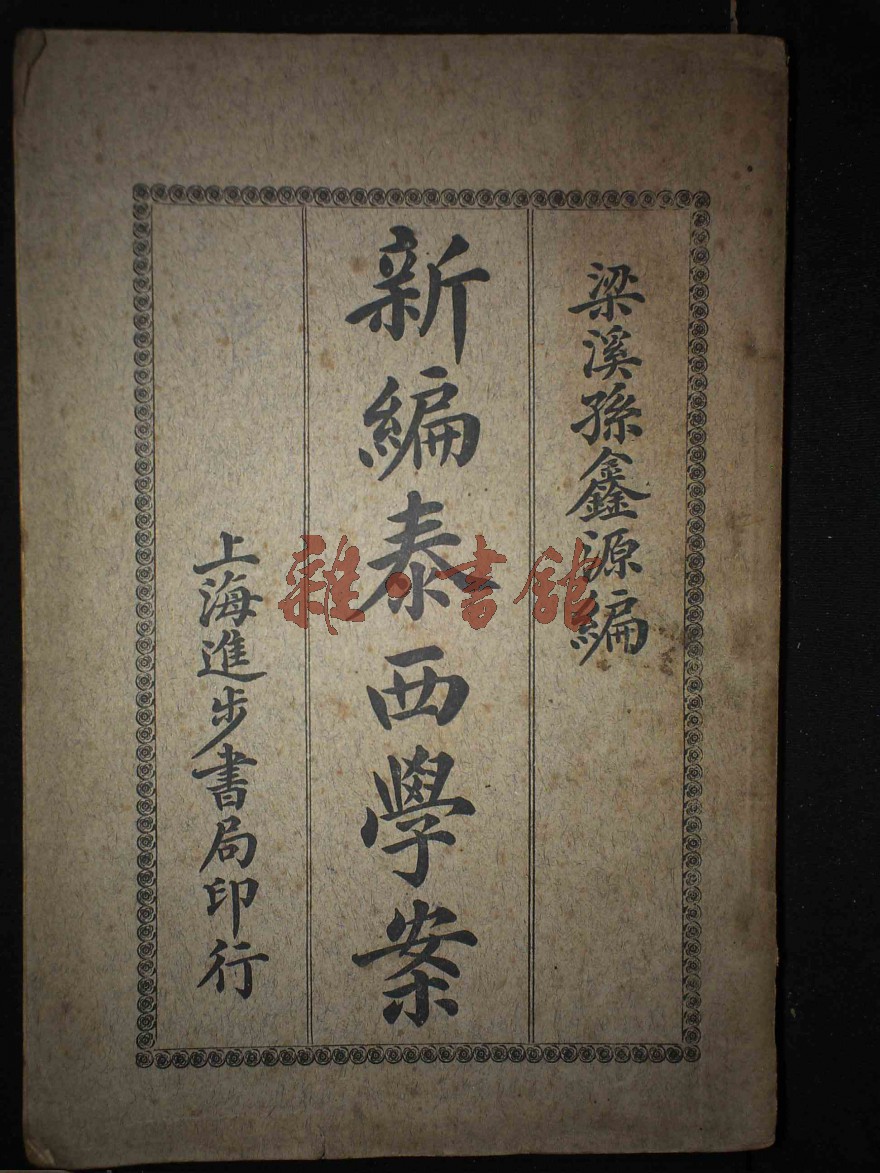 梁溪孫鑫源編
新編泰西學案
上海進步書局印行
雜·書館